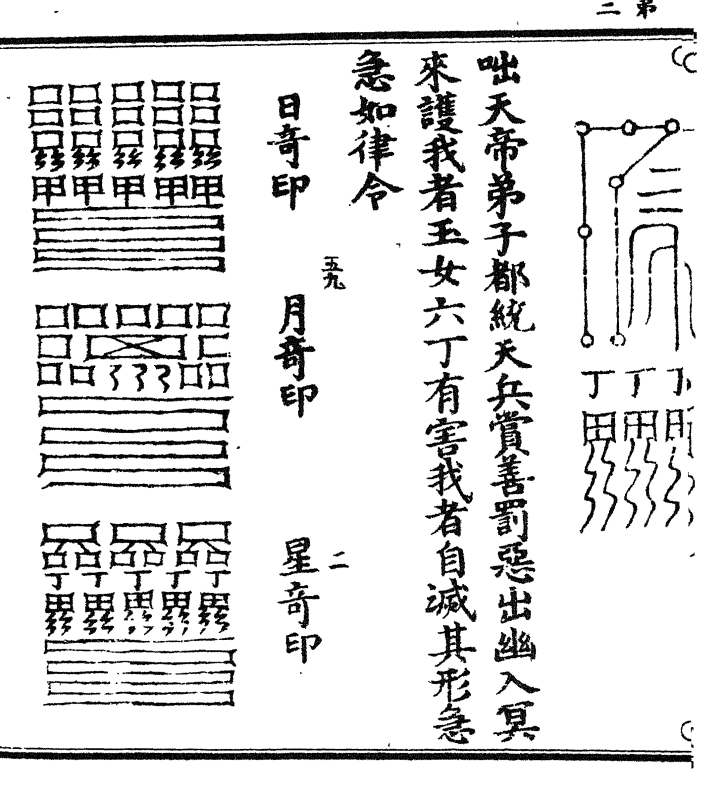 第二
咄天帝弟子都統天兵賞善罰惡出幽入冥
來護我者玉女六丁有害我者自滅其形急
急如律令
日奇印
五九
月奇印
二
星奇印